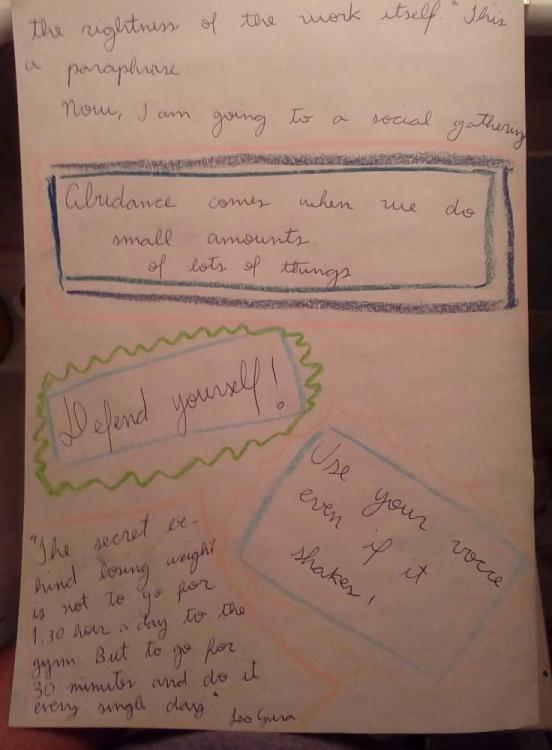 the rightness of the work itself." This
a paraphrase
Now, I am going to a social gathering
Abudance comes when we do
small amounts
of lots of things
Defend yourself!
Use your voice
even if it
shakes!
"The secret be-
hind losing weight
is not to go for
1.30 hour a day to the
gym. But to go for
30 minutes and do it
every single day."
Leo Gura